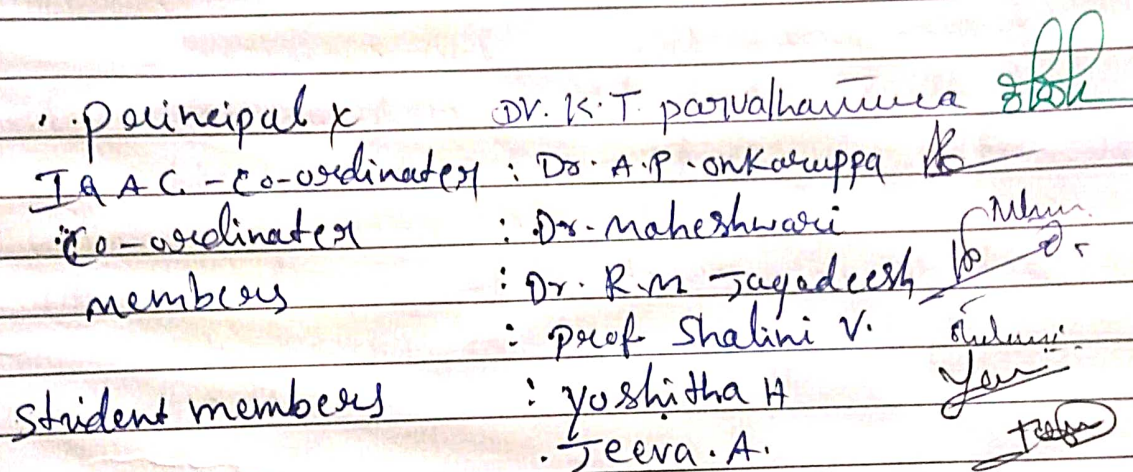 Principal x Dr. K.T. parvathamma
IQAC - Co-ordinater : Dr. A.P. onkarappa
Co-ordinater : Dr. Maheshwari
members : Dr. R.M Jagadeesh
: prof Shalini V.
Student members : Yoshitha H
Jeeva. A.